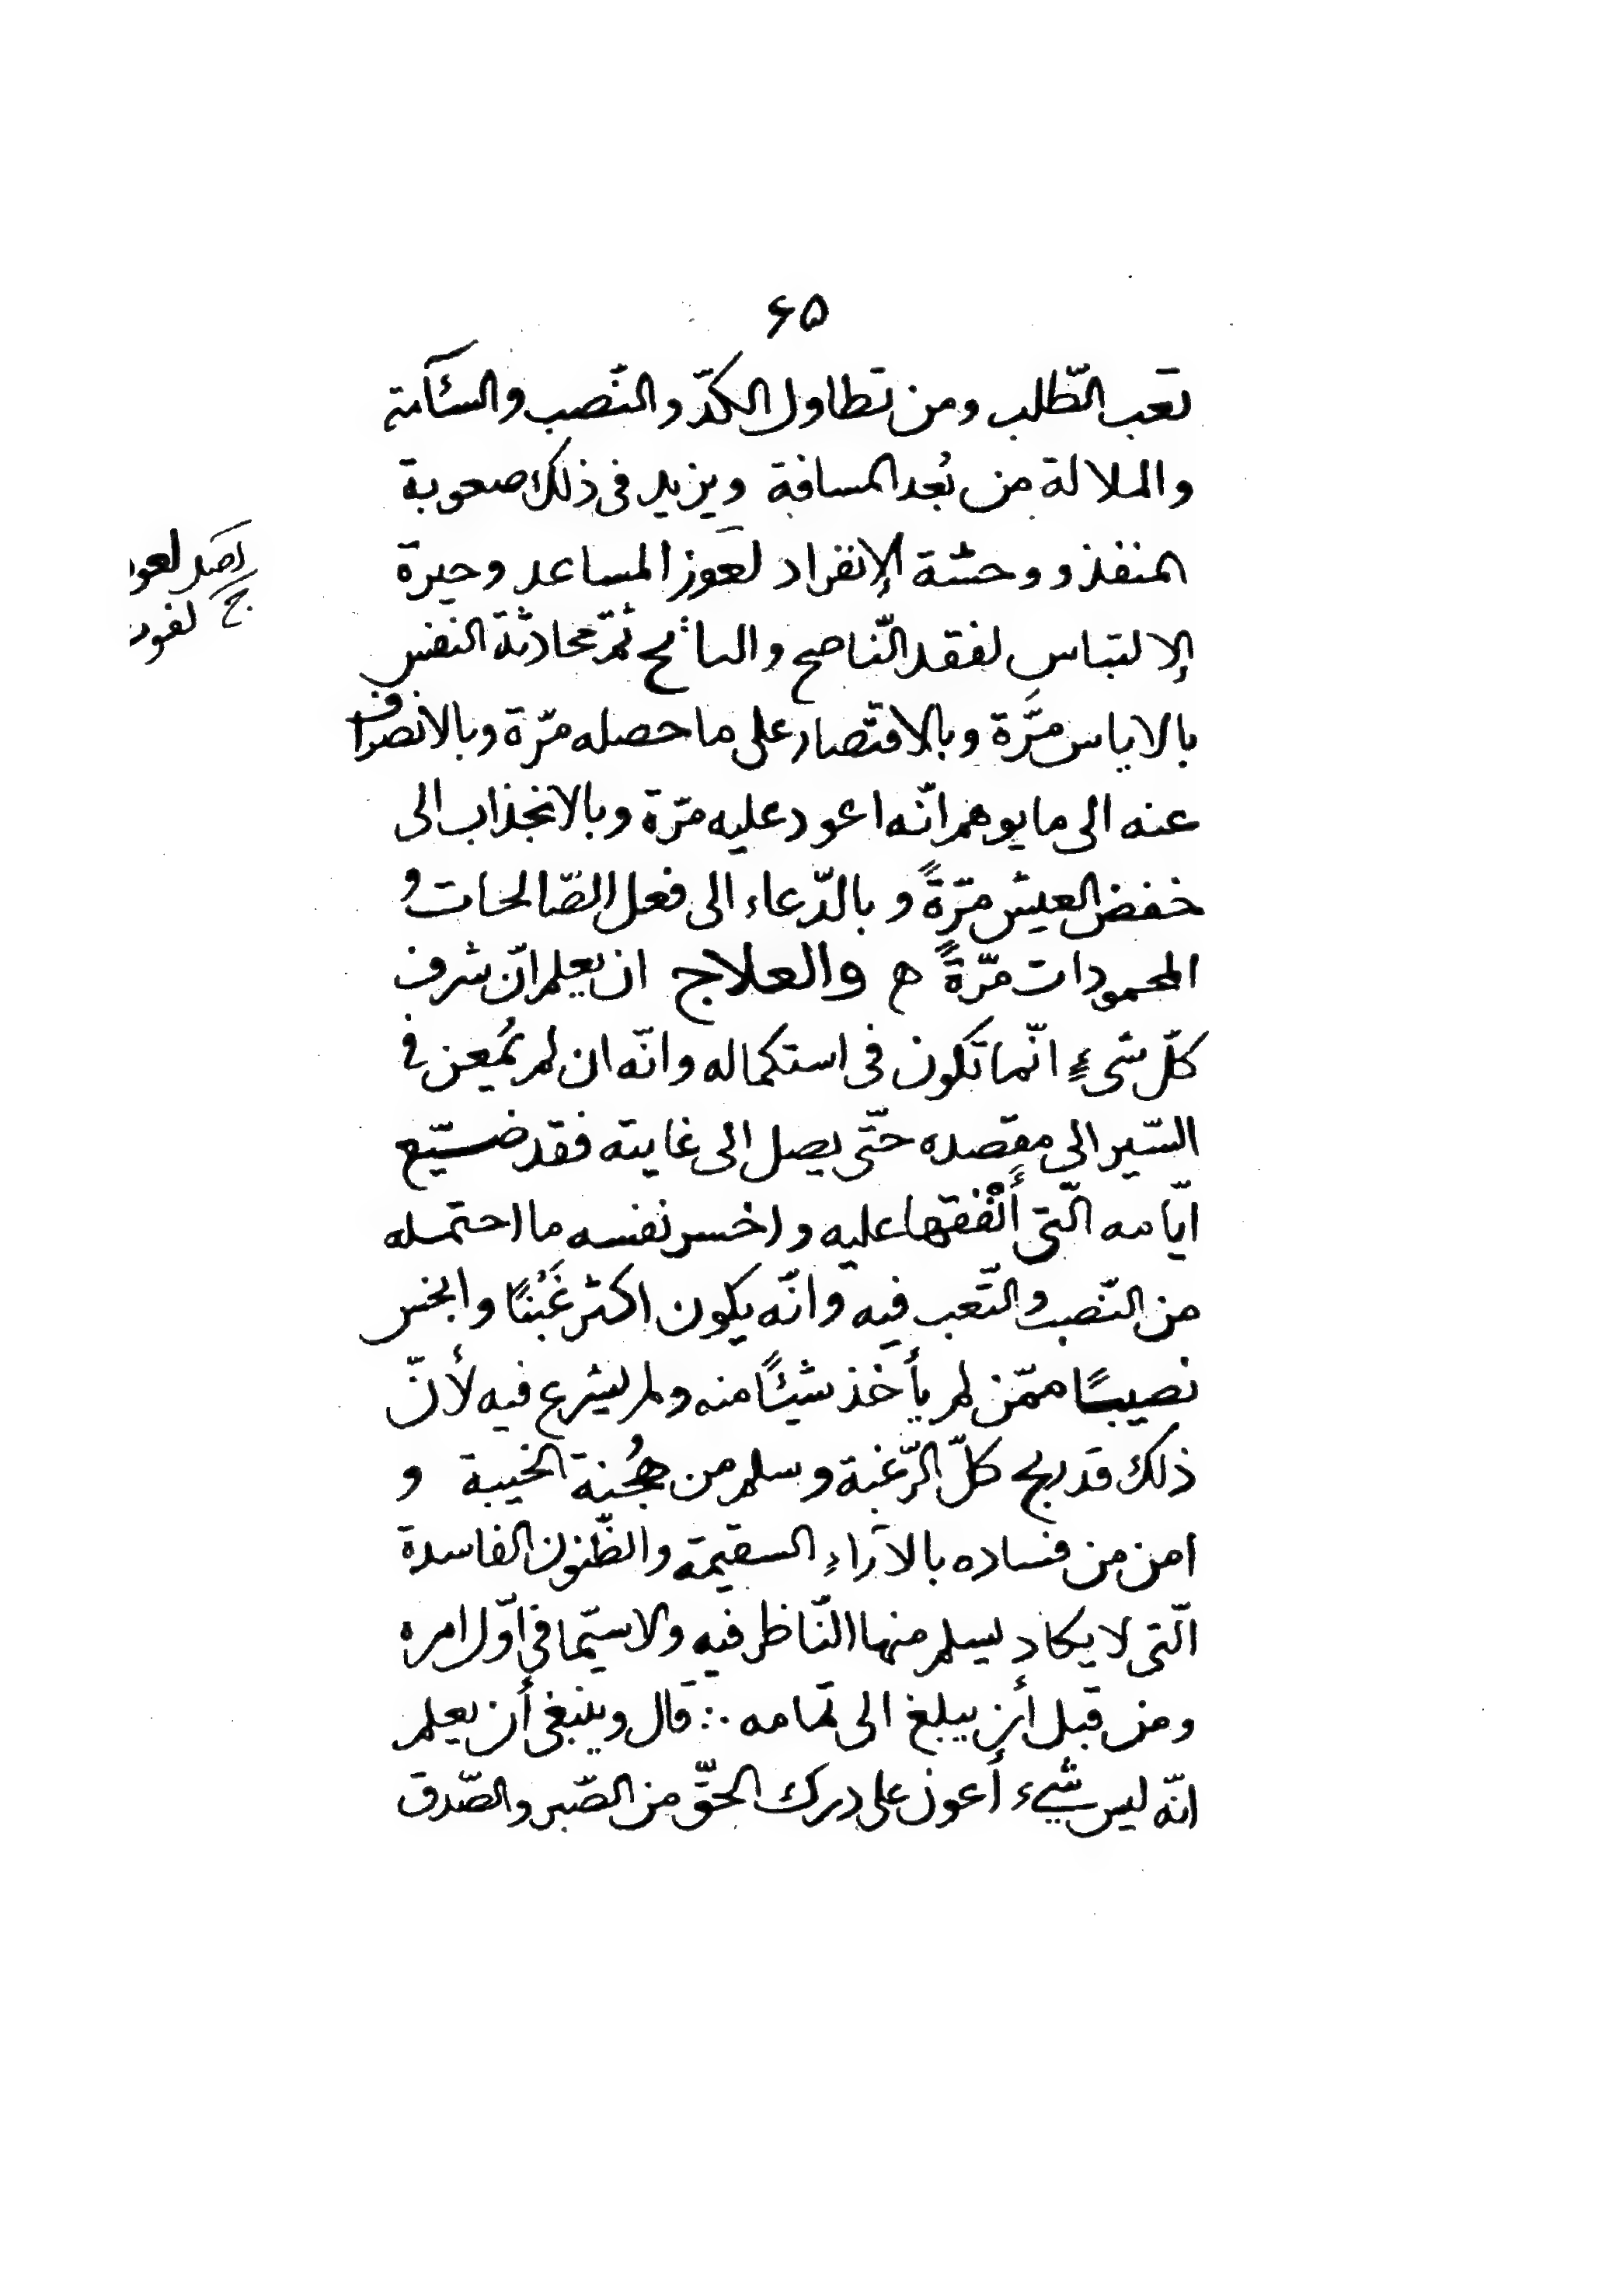 ۶۵
تَعب الطّلب ومن تَطاول الكدّ والنّصب والسئآمة
والملالة من بُعد المسافة ويزيد فى ذلك صعوبة
المنفذ و وحشة الإنفراد لعَوز المساعد وحيرة
الإلتباس لفقد النّاصح والمانح ثمّ محادثة النفس
بالاياس مَرّة وبالاقتصار على ما حصله مرّة وبالانصراف
عنه الى ما يوهم انّه اعود عليه مرّة وبالانجذاب الى
خفض العيش مرّةً و بالدّعاء الى فعل الصّالحات و
المحمودات مرّةً ه والعلاج ان يعلم انّ شرف
كلّ شىءٍ انّما تكون فى استكماله وانّه ان لم يُمعن فى
السّير الى مقصده حتّى يصل الى غايته فقد ضيّع
ايّامه الّتى أَنْفقها عليه واخسر نفسه ما احتمله
من النّصب والتّعب فيه وانّه يكون اكثر غَبْنًا وابخس
نصيبًا ممّن لم يأخذ شيئًا منه ولم يشرع فيه لأنّ
ذلك قد ربح كلّ الرّغبة وسلم من هُجنة الخيبة و
امن من فساده بالآراء السقيمة والظّنون الفاسدة
الّتى لا يكاد يسلم منها النّاظر فيه ولاسيّما فى اوّل امره
ومن قبل أن يبلغ الى تمامه ∴ قال وينبغى أن يعلم
انّه ليس شيء أعون على درك الحقّ من الصّبر والصّدق